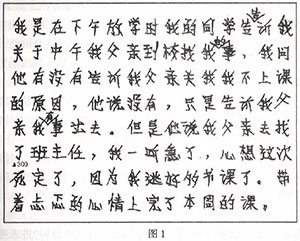 我是在下午放学时我的同学告诉我
关于中午我父亲到校找我事，我问
他有没有告诉我父亲关我我不上课
的原因，他说没有，只是告诉我父
亲我有事出去。但是他说我父亲去找
了班主任，我一听急了，心想这次
▲300
死定了，因为我逃好多节课了。带
着忐忑的心情上完了本周的课。
图1